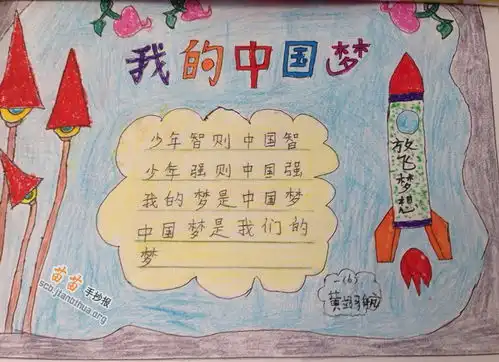 我的中国梦
少年智则中国智
少年强则中国强
我的梦是中国梦
中国梦是我们的
梦
放飞梦想
一(6)
苗苗手抄报
scb.jianbihua.org